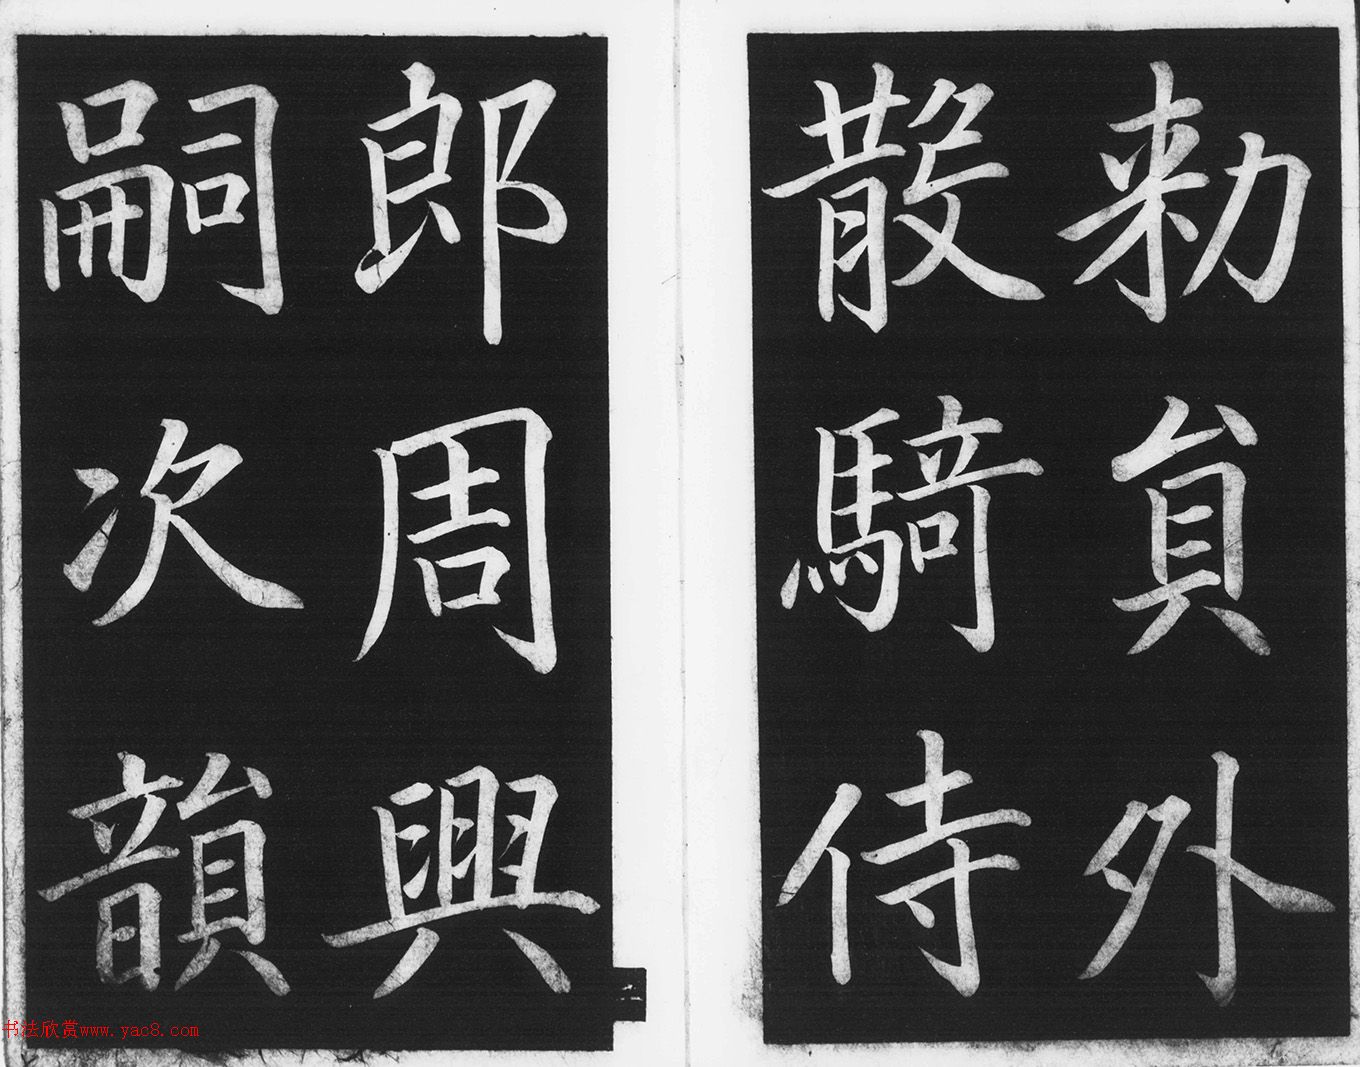 勑員外
散騎侍
郎周興
嗣次韻
二
书法欣赏www.yac8.com